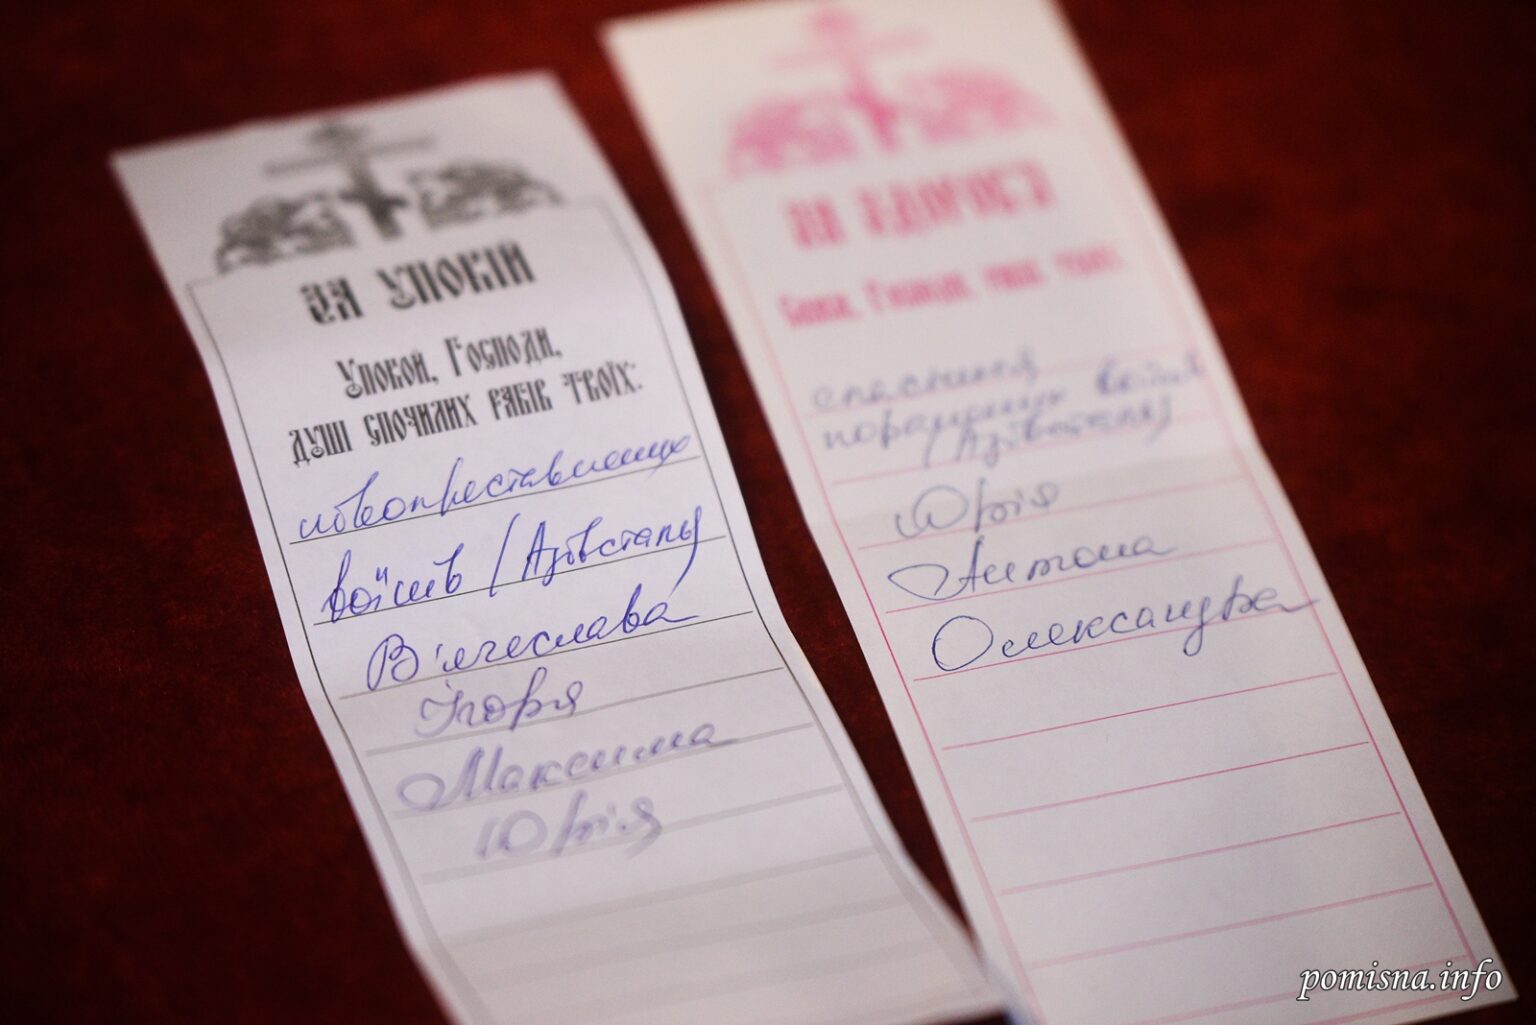 ЗА УПОКІЙ
Упокой, Господи,
душі спочилих рабів Твоїх:
новопреставлених
воїнів (Азовсталь)
В'ячеслава
Ігоря
Максима
Юрія
ЗА ЗДОРОВ'Я
Господи,
спасіння
поранених воїнів
(Азовсталь)
Юрія
Антона
Олександра
pomisna.info